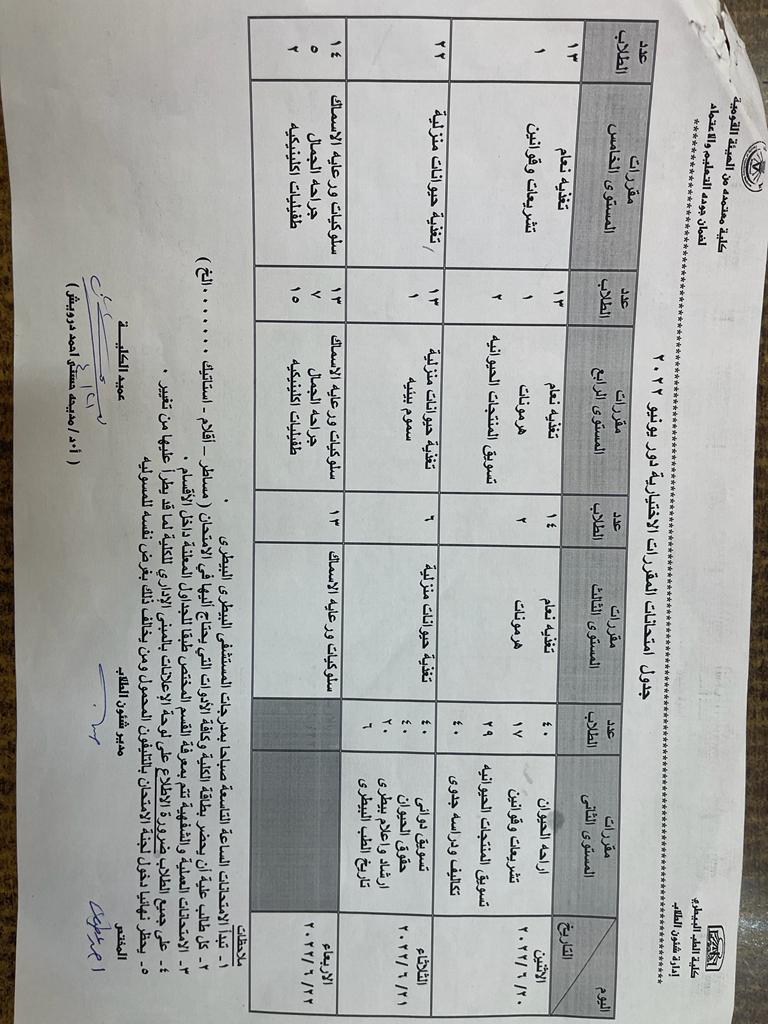 كلية الطب البيطري
إدارة شئون الطلاب
كلية معتمده من الهيئة القومية
لضمان جوده التعليم والاعتماد
جدول امتحانات المقررات الاختيارية دور يونيو ٢٠٢٢
اليوم
التاريخ
مقررات المستوى الثانى
عدد الطلاب
مقررات المستوى الثالث
عدد الطلاب
مقررات المستوى الرابع
عدد الطلاب
مقررات المستوى الخامس
عدد الطلاب
الاثنين
٢٠٢٢/٦/٢٠
اراحه الحيوان ٤٠
تشريعات وقوانين ١٧
تسويق المنتجات الحيوانيه ٢٩
تكاليف ودراسه جدوى ٤٠
تغذيه نعام ١٤
هرمونات ٢
تغذيه نعام ١٣
هرمونات ١
تسويق المنتجات الحيوانيه ٢
تغذيه نعام ١٣
تشريعات وقوانين ١
الثلاثاء
٢٠٢٢/٦/٢١
تسويق دوائى ٤٠
حقوق الحيوان ٤٠
ارشاد واعلام بيطرى ٢٠
تاريخ الطب البيطرى ٦
تغذية حيوانات منزلية ٦
تغذية حيوانات منزلية ١٣
سموم بيئيه ١
/تغذية حيوانات منزلية ٢٢
الاربعاء
٢٠٢٢/٦/٢٢
سلوكيات ورعايه الاسماك ١٣
سلوكيات ورعايه الاسماك ١٣
جراحه الجمال ٧
طفيليات اكلينيكيه ١٥
سلوكيات ورعايه الاسماك ١٤
جراحه الجمال ٥
طفيليات اكلينيكيه ٢
ملاحظات
١- تبدأ الامتحانات الساعة التاسعة صباحا بمدرجات المستشفى البيطرى البيطرى .
٢- كل طالب عليه أن يحضر بطاقة الكلية وكافة الأدوات التي يحتاج أليها في الامتحان ( مساطر – أقلام – استاتيك ........الخ )
٣- الامتحانات العملية والشفهية تتم بمعرفة القسم المختص طبقا للجداول المعلنة داخل الأقسام .
٤- على جميع الطلاب ضرورة الاطلاع على لوحة الإعلانات بالمبنى الإداري للكلية لما قد يطرأ عليها من تغيير .
٥- يحظر نهائيا دخول لجنة الامتحان بالتليفون المحمول ومن يخالف ذلك يعرض نفسه للمسوليه
المختص
مدير شئون الطلاب
عميد الكليـــة
( أ.د/ مديحه حسنى احمد درويش )